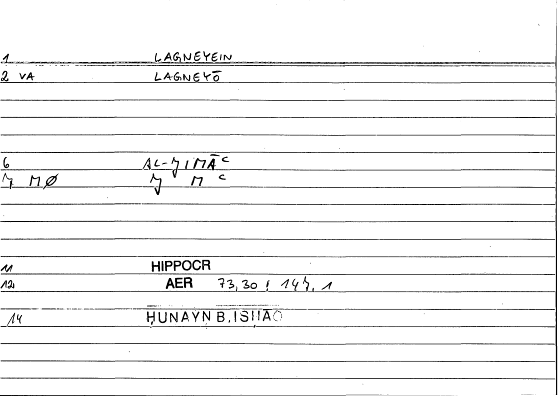 1 LAGNEYEIN
2 VA LAGNEYŌ
6 AL-ǦIMĀᶜ
Ǧ MØ Ǧ M ᶜ
11 HIPPOCR
12 AER 73,30
14 ḤUNAYN B. ISḤĀQ